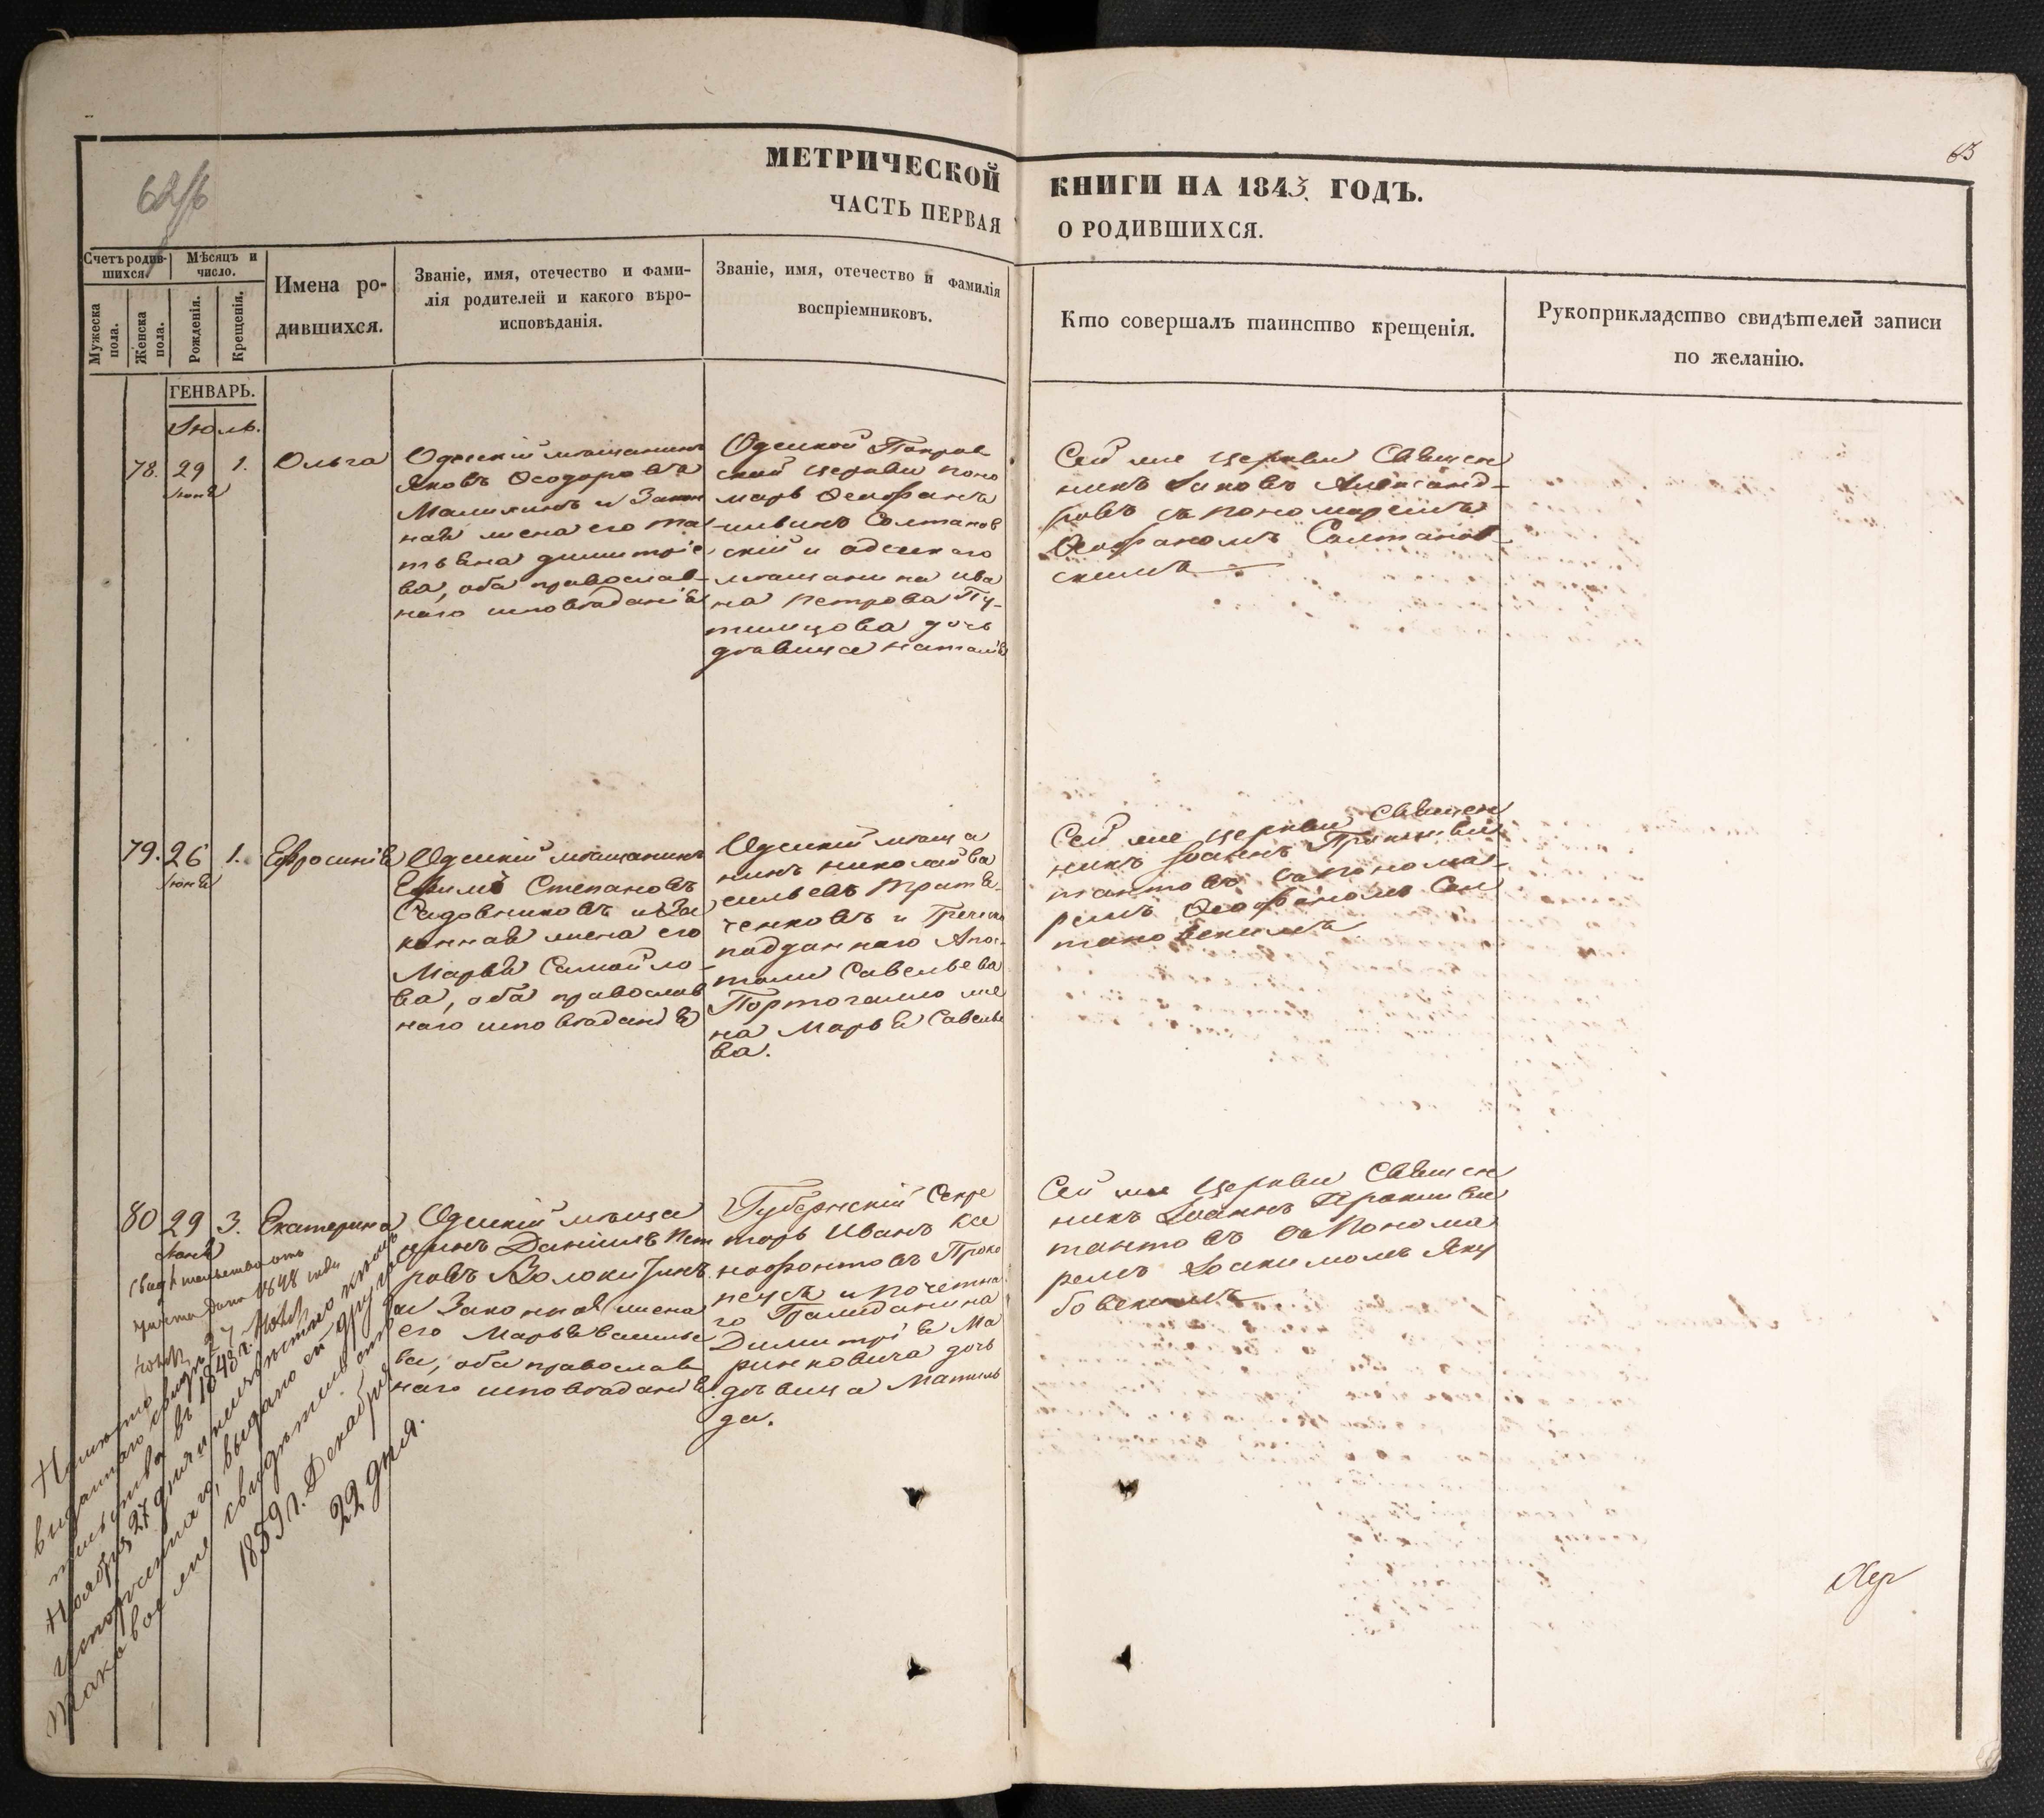 МЕТРИЧЕСКОЙ
КНИГИ НА 1843. ГОДЪ.
ЧАСТЬ ПЕРВАЯ
О РОДИВШИХСЯ.
63
Счетъ родив-
шихся.
Мѣсяцъ и
число.
Мужеска
пола.
Женска
пола.
Рожденія.
Крещенія.
Имена ро-
дившихся.
Званіе, имя, отечество и фами-
лія родителей и какого вѣро-
исповѣданія.
Званіе, имя, отечество и фамилія
воспріемниковъ.
Кто совершалъ таинство крещенія.
Рукоприкладство свидѣтелей записи
по желанію.
ГЕНВАРЬ.
Іюль.
78.
29
Іюня
1.
Ольга
Одесскій мѣщанинъ
Яковъ Ѳеодоровъ
и Закон
ная жена его Та
тьяна Димитріе
ва, оба православ-
наго исповѣданія
Одеской Покров
ской церкви поно
марь Ѳеофанъ
Солтанов
скій и одескаго
мѣщанина Ива
на Петрова Пу-
тимцова дочь
дѣвица Наталія
Сей же церкви Священ
никъ Іаковъ Александ-
ровъ съ пономаремъ
Ѳеофаномъ Салтанов
скимъ
79.
26
Іюня
1.
Ефросинія
Одескій мѣщанинъ
Ефимъ Степановъ
Садовниковъ и За
конная жена его
Марья Самойло-
ва, оба православ
наго исповѣданія
Одескій мѣща
нинъ Николай Ва
сильевъ
ченковъ и Греческо
подданнаго Апос-
толи Савельева
Портогалло же
на Марья Савелье
ва.
Сей же церкви Священ
никъ Іоаннъ
съ понома-
ремъ Ѳеофаномъ Сал
тановскимъ
80
29
Іюня
3.
Екатерина
Одескій мѣща
нинъ Даніилъ Пет
ровъ Волокитинъ
и Законная жена
его Марья Василье
ва, оба православ
наго исповѣданія
Губернскій Секре
тарь Иванъ Ксе
нофонтовъ Проко
пецъ и почетна
го Гражданина
Димитрія Ма
ринковича дочь
дѣвица Матиль
да.
Сей же церкви Священ
никъ Іоаннъ
съ Понома
ремъ Іоакимомъ Яку
бовскимъ
свидѣтельство отъ
дано 1848 года
27
выданнаго свидѣ
тельства въ 1848 г.
Ноября 27 дня и
испорченнаго, выдано ей другое
таковое же свидѣтельство
1859 г. Декабря
22 дня.